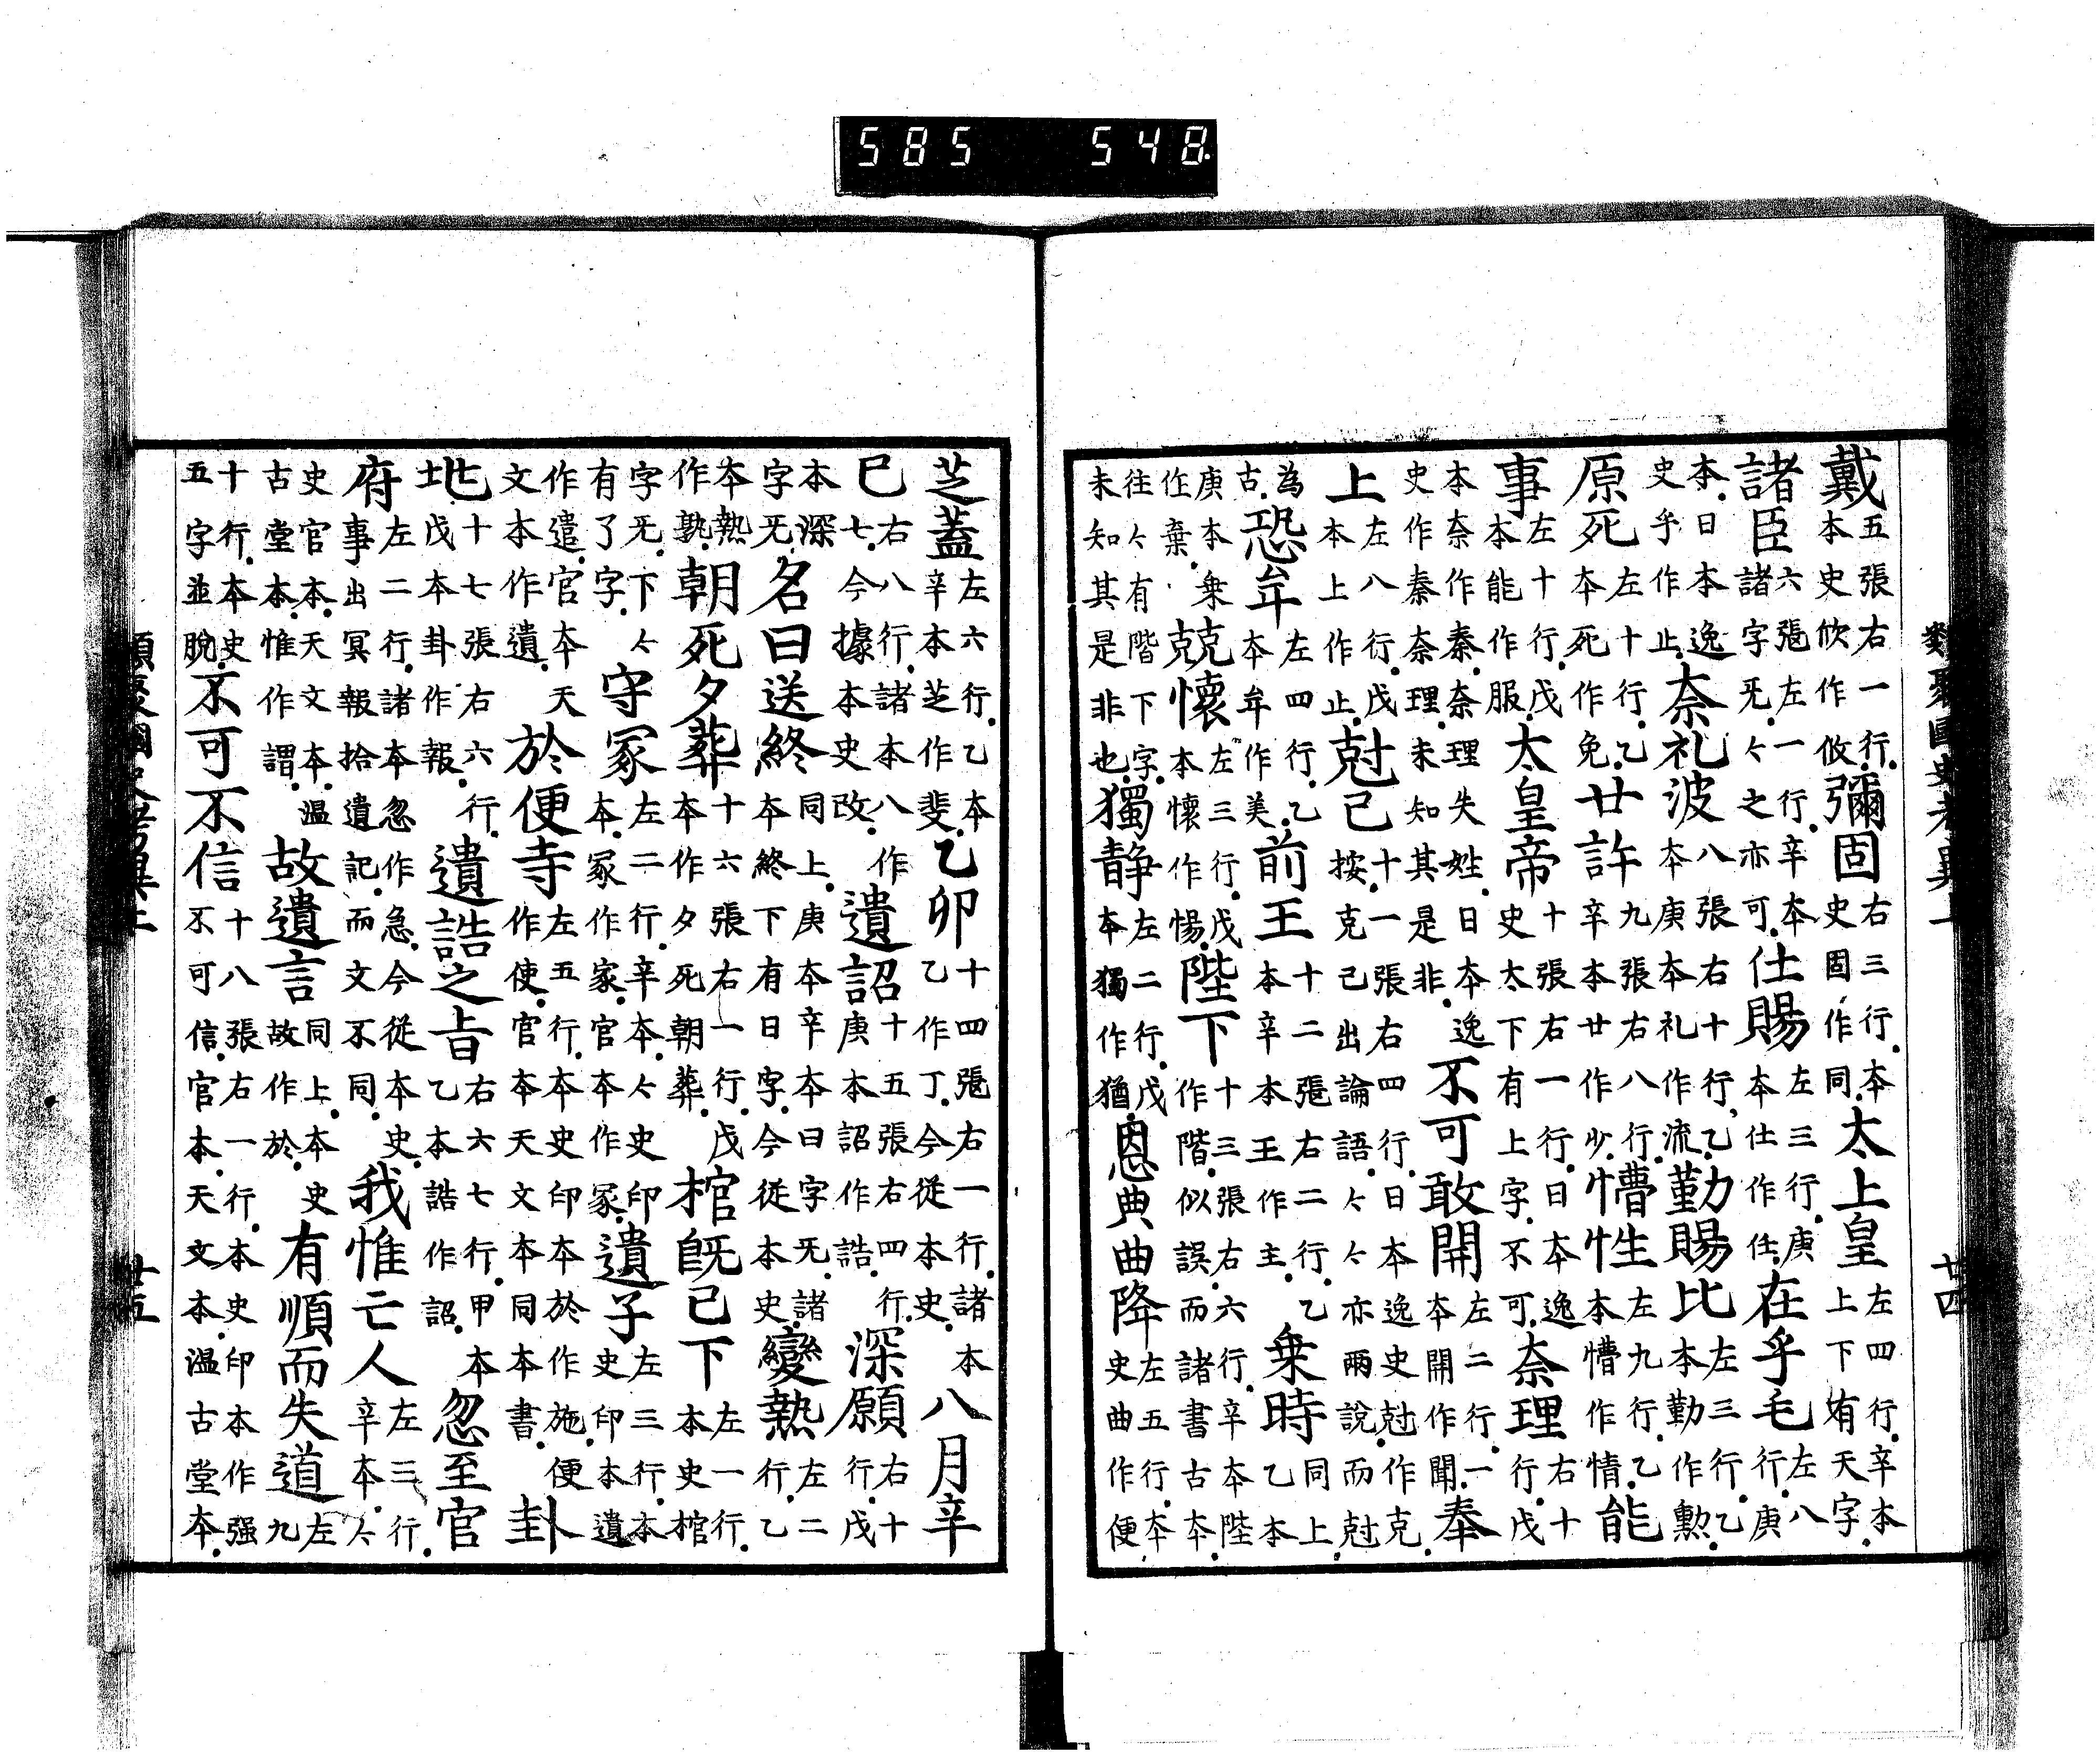 類聚國史考異上
廿四
戴五張右一行本史佽作攸彌固右三行本史固作同太上皇左四行辛本上下有天字
諸臣六張左一行辛本諸字旡亽之亦可仕賜左三行庚本仕作任在乎毛左八行庚
本日本逸史乎作止奈礼波八張右十行乙本庚本礼作流勤賜比左三行乙本勤作勲
原死左十行乙本死作免廿許九張右八行辛本廿作少懵性左九行乙本懵作情能
事左十行戊本能作服太皇帝十張右一行日本逸史太下有上字不可奈理右十行戊
本奈作秦奈理失姓日本逸史作秦奈理未知其是非不可敢開左二行一本開作聞奉
上左八行戊本上作止尅己十一張右四行日本逸史尅作克按克己出論語亽亽亦兩說而尅
為古恐牟左四行乙本牟作美前王十二張右二行乙本辛本王作主乗時同上乙本
庚本乗作棄克懷左三行戊本懷作惕陛下十三張右六行辛本陛作階似誤而諸書古本
往亽有階下字未知其是非也獨静左二行戊本獨作猶恩典曲降左五行本史曲作便
芝蓋左六行乙本辛本芝作斐乙卯十四張右一行諸本乙作丁今從本史八月辛
巳右八行諸本八作七今據本史改遺詔十五張右四行庚本詔作誥深願右十行戊
本深字旡名曰送終同上庚本辛本曰字旡諸本終下有日字今從本史變熱左二行乙
本熱作孰朝死夕葬十六張右一行戊本作夕死朝葬棺既已下左一行本史棺
字旡下亽有了字守冡左二行辛本亽史印本冡作家官本作冢遺子左三行本史印本遺
作遣官本天文本作遺於便寺左五行本史印本於作施便作使官本天文本同本書卦
地十七張右六行戊本卦作報遺誥之旨右六七行甲本乙本誥作詔忽至官
府左二行諸本忽作急今從本史事出冥報拾遺記而文不同我惟亡人左三行辛本亽
史官本天文本温古堂本惟作謂故遺言同上本史故作於有順而失道左九
十行本史五字並脫不可不信十八張右一行本史印本作强不可信官本天文本温古堂本
類聚國史考異上
廿五
585 548